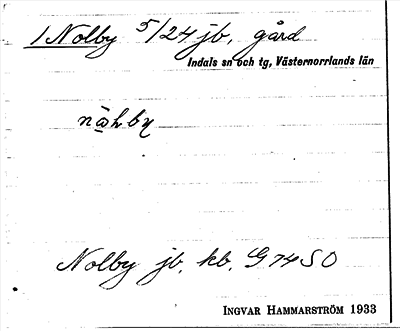 1 Nolby 5/24 jb, gård
Indals sn och tg, Västernorrlands län
nạ̈Lby
Nolby jb. kb. G 74 SO
INGVAR HAMMARSTRÖM 1933